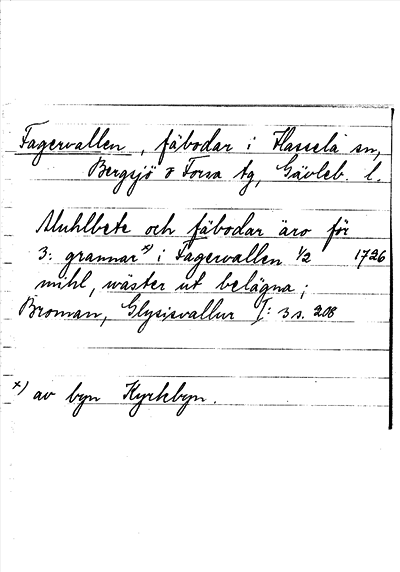 Fagervallen, fäbodar i Hassela sn,
Bergsjö o Forsa tg, Gävleb. l.
Muhlbete och fäbodar äro för
3: grannar x) i Fagervallen 1/2 1726
mihl, wäster ut belägna;
Broman, Glysisvallur I: 3 s. 208
x) av byn Kyrkbyn.